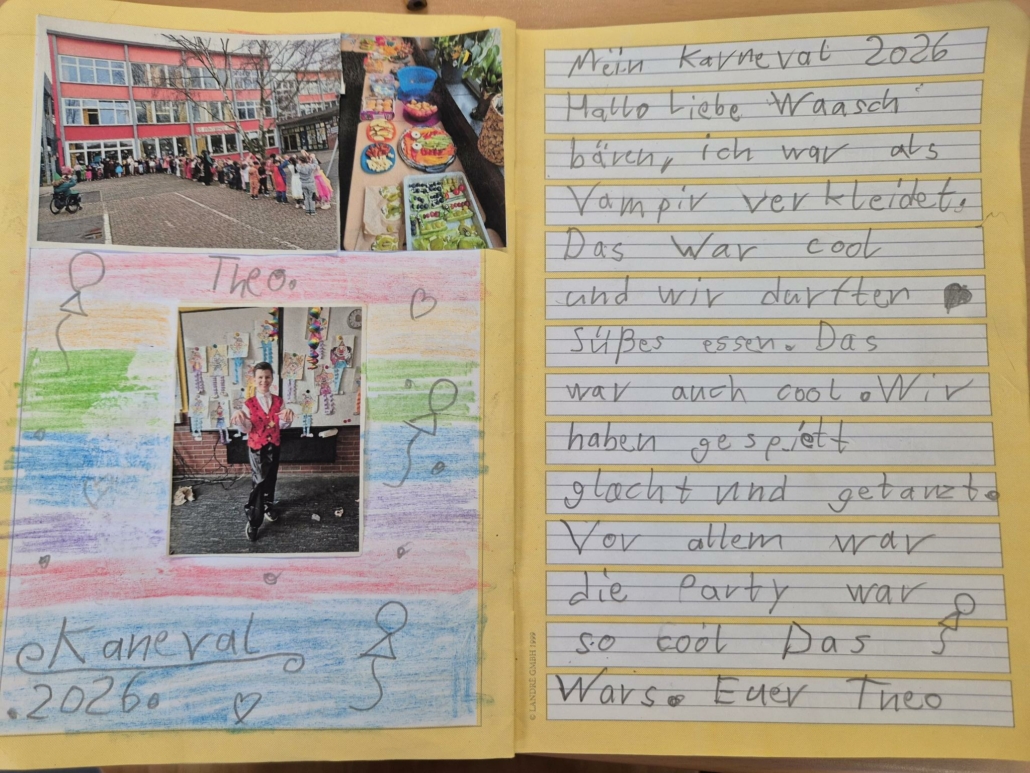 Theo.
Kaneval
.2026.
Mein Karneval 2026
Hallo Liebe Waasch
bären, ich war als
Vampir verkleidet.
Das war cool
und wir durften
süßes essen. Das
war auch cool. Wir
haben gespielt
glacht und getanzt.
Vor allem war
die Party war
so cool Das
Wars. Euer Theo
© LANDRÉ GMBH 1999